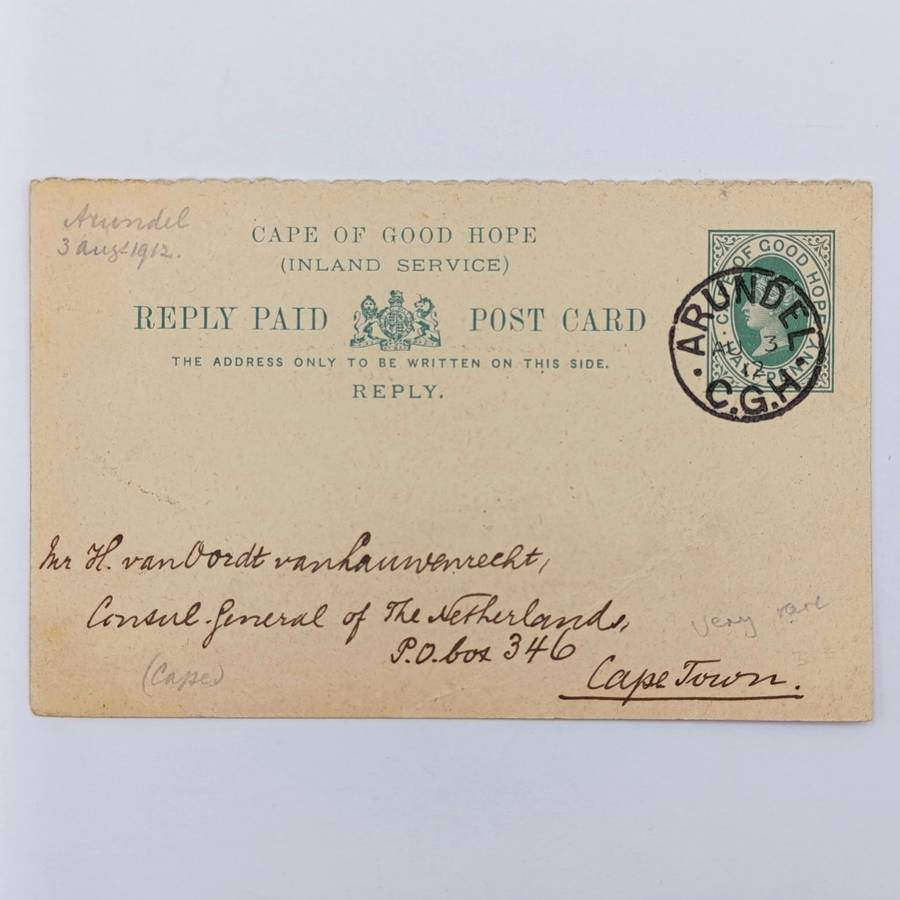 Arundel
3 Aug 1912.
CAPE OF GOOD HOPE
(INLAND SERVICE)
REPLY PAID POST CARD
THE ADDRESS ONLY TO BE WRITTEN ON THIS SIDE.
REPLY.
CAPE OF GOOD HOPE
HALF PENNY
ARUNDEL
AU 3
12
C.G.H.
Mr H. van Oordt van Lauwenrecht,
Consul-General of The Netherlands,
P.O. box 346
Cape Town.
(Cape)
very rare